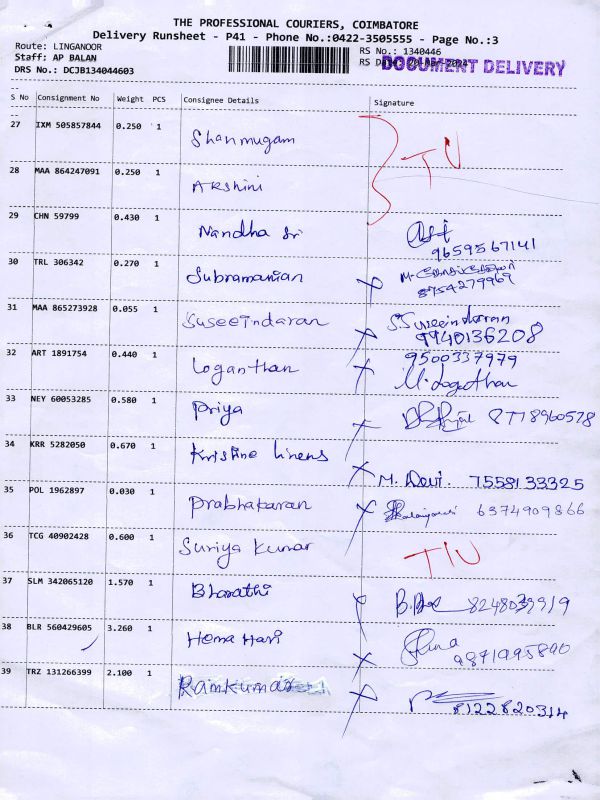 THE PROFESSIONAL COURIERS, COIMBATORE
Delivery Runsheet - P41 - Phone No.:0422-3505555 - Page No.:3
Route: LINGANOOR
Staff: AP BALAN
DRS No.: DCJB134044603
RS No.: 1340446
RS Date: 20-Mar-2024
DOCUMENT DELIVERY
S No Consignment No Weight PCS Consignee Details Signature
27 IXM 505857844 0.250 1 Shanmugam
TU
28 MAA 864247091 0.250 1 Akshini
29 CHN 59799 0.430 1 Nandha Sri
9659567141
30 TRL 306342 0.270 1 Subramanian
8754279969
31 MAA 865273928 0.055 1 Suseeindaran S.Suseeindaran
9940136208
32 ART 1891754 0.440 1 Loganthan 9500337979
33 NEY 60053285 0.580 1 Priya
34 KRR 5282050 0.670 1 Kristine linens M. Devi. 7558133325
35 POL 1962897 0.030 1 Prabhakaran 6374909866
36 TCG 40902428 0.600 1 Suriya Kumar TU
37 SLM 342065120 1.570 1 Bharathi 8248039919
38 BLR 560429605 3.260 1 Hema Hari
9871995890
39 TRZ 131266399 2.100 1 Ramkumar
8122820314